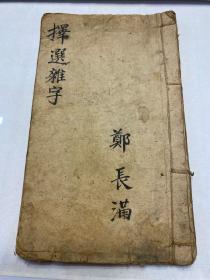 擇選雜字
鄭長滿